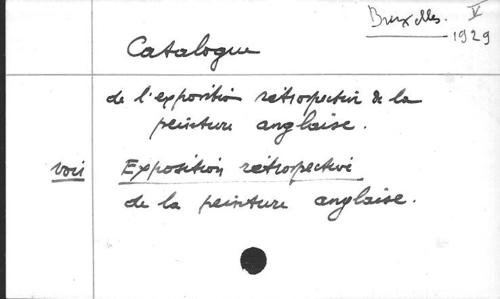 Bruxelles. V
1929
Catalogue
de l'exposition rétrospective de la
peinture anglaise.
voir Exposition rétrospective
de la peinture anglaise.